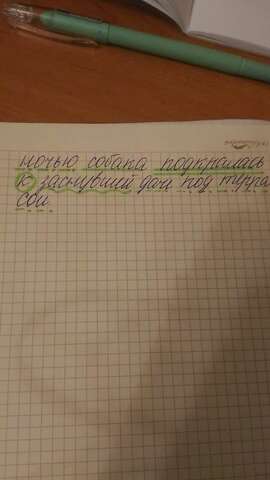 ночью собака подкралась
к заснувшей даче под терра
сой